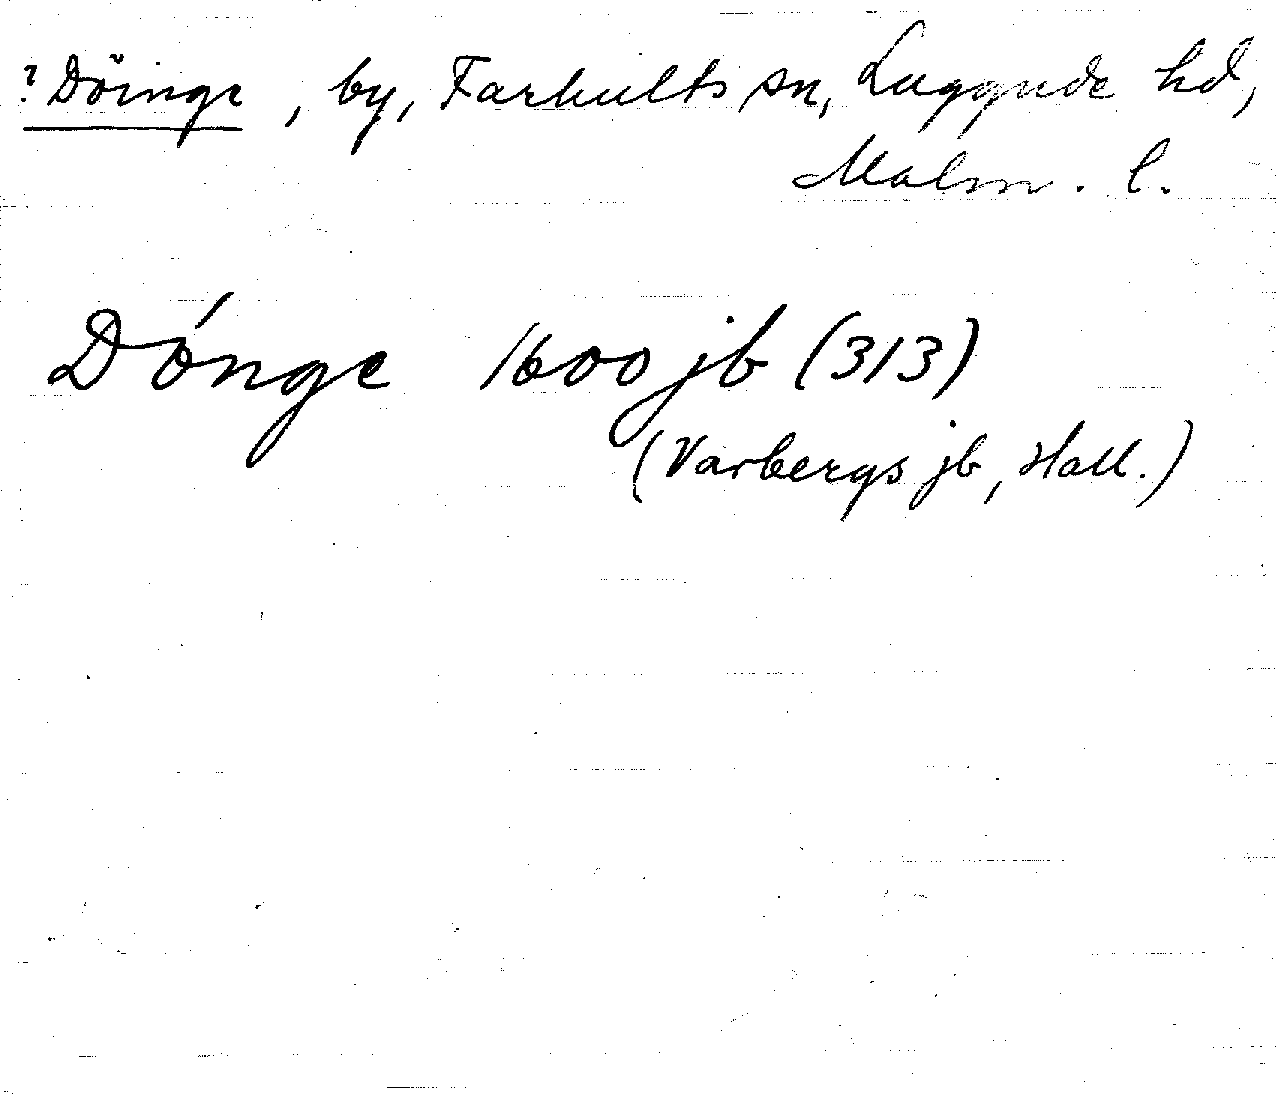 ? Döinge, by, Farhults sn, Luggude hd,
Malm. l.
Dónge 1600 jb (313)
(Varbergs jb, Hall.)